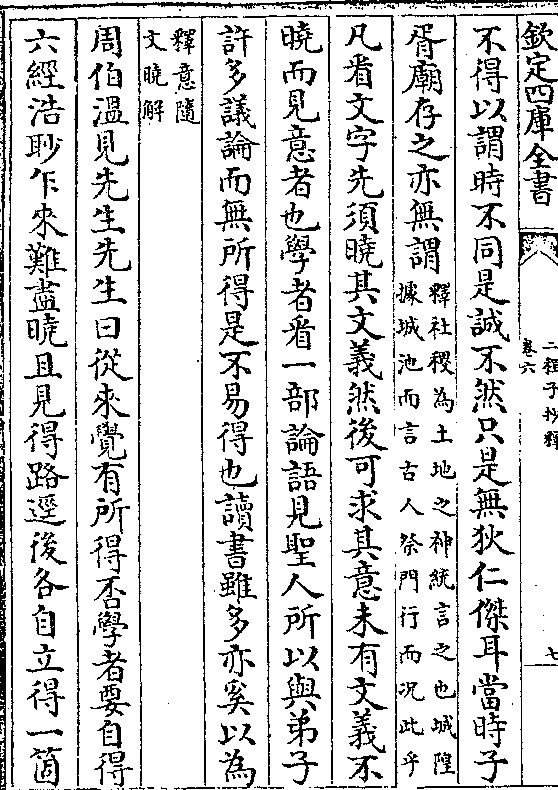 欽定四庫全書
二程子抄釋
卷六
七
不得以謂時不同是誠不然只是無狄仁傑耳當時子
胥廟存之亦無謂
釋社稷為土地之神統言之也城隍
據城池而言古人祭門行而况此乎
凡看文字先須曉其文義然後可求其意未有文義不
曉而見意者也學者看一部論語見聖人所以與弟子
許多議論而無所得是不易得也讀書雖多亦奚以為
釋意隨
文曉解
周伯溫見先生先生曰從來覺有所得否學者要自得
六經浩眇乍來難盡曉且見得路逕後各自立得一箇